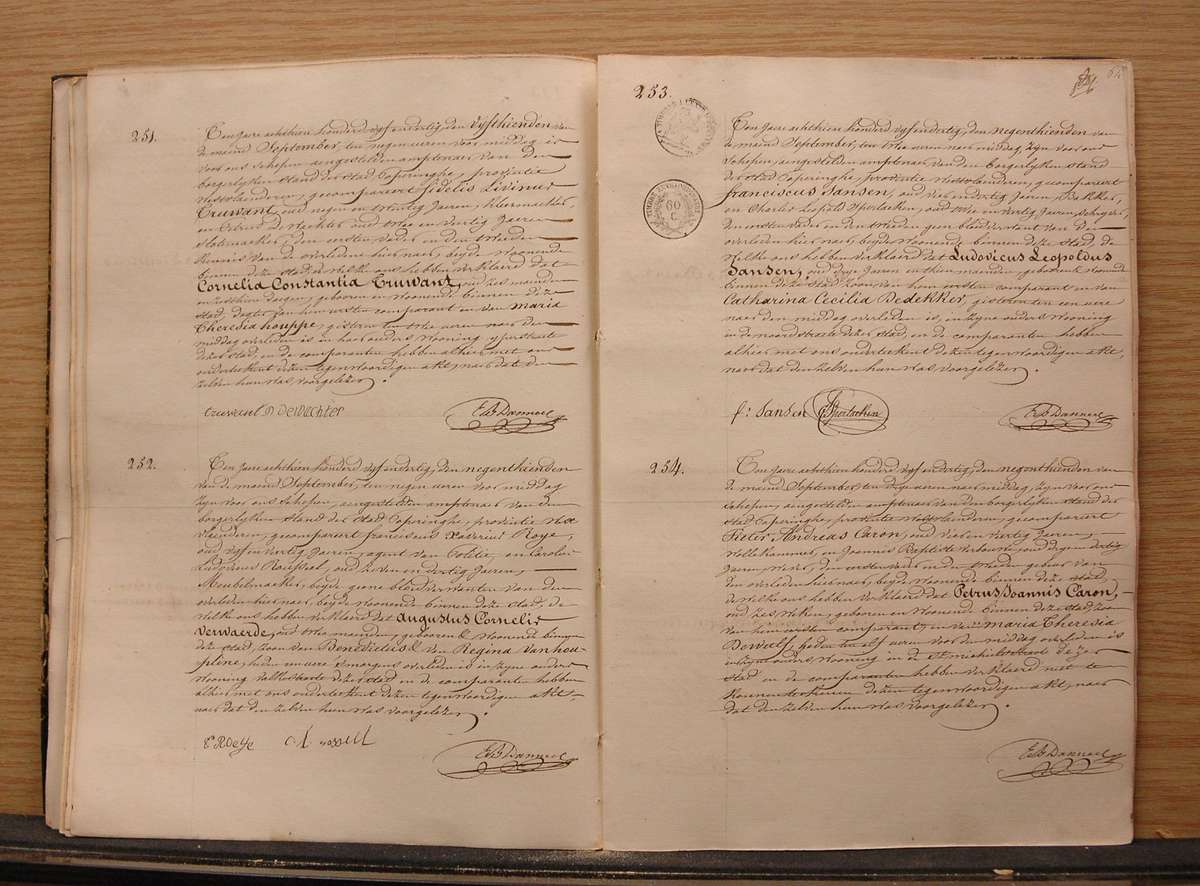 251.
Ten Jaere achthien honderd vyf en dertig, den vyfthienden van
de maend September, ten negen ueren voor middag is
voor ons schepen aengestelden amptenaer van den
borgerlyken stand der stad Poperinghe, provintie
Westvlaenderen, gecompareert Fidelis Livinus
Truwant, oud negen en Jaeren,
en De Wachter oud en veertig Jaeren
den eersten vader en den tweeden
kennis van de overledene hier naer, beyde woonende
binnen deze stad de welke ons hebben verklaerd dat
Cornelia Constantia Truwant, oud zes maenden
en dagen, geboren en woonende binnen deze
stad, dogter van hem eersten comparant en van Maria
Theresia Houppe, gisteren ten twee ueren naer den
middag overleden is in haer ouders wooning
dezer stad, en de comparanten hebben alhier met ons
onderteekent dezen tegenwoordigen akt, naer dat den
zelven hun was voorgelezen.
Truwant Dewachter
252.
Ten Jaere achthien honderd vyf en dertig, den negenthienden
van de maend September, ten negen ueren voor middag
zyn voor ons schepen, aengestelden amptenaer van den
borgerlyken stand der stad Poperinghe, provintie West
vlaenderen, gecompareert Franciscus Xaverius Roye,
oud vyf en veertig Jaeren, agent van Politie, en Carolus
Ludovicus Roussel, oud zeven en dertig Jaeren,
Meubelmaeker, beyde geene bloedverwanten van den
overleden hier naer, beyde woonende binnen deze stad, de
welke ons hebben verklaerd dat Augustus Cornelis
Verwaerde, oud twee maenden, geboren & woonende binnen
deze stad, zoon van Benedictus & van Regina Vanhou
pline, heden een uere 's morgens overleden is in zyne ouders
wooning dezer stad en de comparanten hebben
alhier met ons onderteekent dezen tegenwoordigen akt,
naer dat den zelven hun was voorgelezen.
253.
Ten Jaere achthien honderd vyf en dertig, den negenthienden van
de maend September, ten twee ueren naer middag zyn voor ons
schepen, aengestelden amptenaer van den borgerlyken stand
der stad Poperinghe, provintie Westvlaenderen, gecompareert
Franciscus Sansen, oud vier en dertig Jaeren, Bakker,
en Charles Leopold Sportachen, oud twee en veertig Jaeren,
den eersten vader en den tweeden geen bloedverwant van den
overleden hier naer, beyde woonende binnen deze stad de
welke ons hebben verklaerd dat Ludovicus Leopoldus
Sansen, oud drye Jaeren en thien maenden, geboren & woonende
binnen deze stad zoon van hem eersten comparant en van
Catharina Cecilia Dedekker, gisteren ten een uere
naer den middag overleden is, in zyne ouders wooning
in de noordstraete dezer stad, en de comparanten hebben
alhier met ons onderteekent dezen tegenwoordigen akt,
naer dat den zelven hun was voorgelezen.
60
C.
f: Sansen
254.
Ten Jaere achthien honderd vyf en dertig, den negenthienden van
de maend September, ten drye ueren naer middag, zyn voor ons
schepen, aengestelden amptenaer van den borgerlyken stand der
stad Poperinghe, provintie Westvlaenderen, gecompareert
Pieter Andreas Caron, oud vier en veertig Jaeren,
Wollekammer, en Joannes Baptiste Verbouw, oud en dertig
Jaeren, Wever, den eersten vader en den tweeden gebuer van
den overleden hier naer, beyde woonende binnen deze stad,
de welke ons hebben verklaerd dat Petrus Joannis Caron,
oud zes weken, geboren en woonende binnen deze stad zoon
van hem eersten comparant, en van Maria Theresia
Dewulf, heden ten elf ueren voor den middag overleden is
in zyne ouders wooning in de St Michielstraete dezer
stad en de comparanten hebben verklaerd niet te
konnen dezen tegenwoordigen akt, naer
dat den zelven hun was voorgelezen.